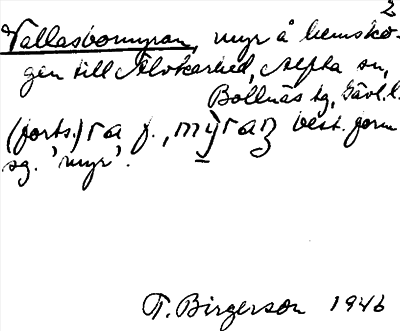 2
Vallasbomyran, myr å hemsko-
gen till Älvkarhed, Alfta sn,
Bollnäs tg, Gävl. l.
(forts.) ra f., mỳraʒ best. form
sg. 'myr'.
T. Birgerson 1946